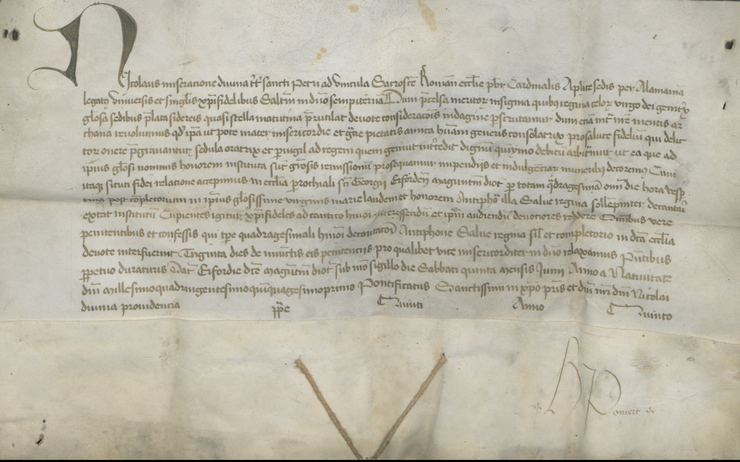 Nicolaus miseracione divina tt̄. sancti Petri ad vincula Sacrosc̄te Roman̄ eccl̄ie pb̄r Cardinalis Ap̄lice sedis per Alamania
legatꝫ vniuersis et singl̄is xp̄ifidelibus Salt̄m in dn̄o sempiterna Dum p̄celsa meritor̄ insignia quibꝫ regina celor̄ virgo dei genitx̄
gl̄osa sedibus p̄lata sidereis quasi stella matutina p̄rutilat deuote consideracōis indagine p̄scrutamur dum eciā int̄ nr̄e mentis ar
chana reuoluimus qd̄ ip̄a vt pote mater misericordie et gr̄e pietatis amica humani gen̄eris consolatrix pro salute fidelium qui delic
tor̄ onere p̄grauantur sedula oratrix et p̄uigil ad regem quem genuit int̄cedit dignū quiymo debitū arbitramur vt ea que ad
ipius gl̄osi nominis honorem instituta sūt gr̄osis remissionū prosequamur impendijs et indulgētiar̄ muneribꝫ decoremꝰ Cum
itaqꝫ sicuti fidei relatione accepimus in eccl̄ia parochiali sc̄i Georgij Erforden̄ magunt̄n dioc̄ per totam qᵈragesimā om̄i die hora vesp̄
post completorium in ip̄ius gl̄osissime virginis marie laudem et honorem Antiphā illa Salue regina sollepniter decantari
extitit institutū Cupientes igitur xp̄ifideles ad tantiꝫ hui intercessend̄ et ip̄m audiendū deuociores reddere Om̄ibus vere
penitentibus et confessis qui tp̄e quadragesimali hm̄oi decantacōi Antiphone Salue regina sil̄ et completorio in dc̄ta eccl̄ia
deuote interfuerint Triginta dies de iniūctis eis penitenciis pro qualibet vice misericorditer in dn̄o relaxamus Pn̄tibus
p̄petuo duraturis Dat̄ Erfordie dc̄te magunt̄n dioc̄ sub nr̄o sigillo die Sabbati quinta mensis Junij Anno a Natiuitate
dn̄i millesimoquadringentesimoquīquagesimoprimo Pontificatus Sanctissimi in xp̄o pr̄is et dn̄i nr̄i dn̄i Nicolai
diuina prouidencia pp̄e Quinti Anno Quinto